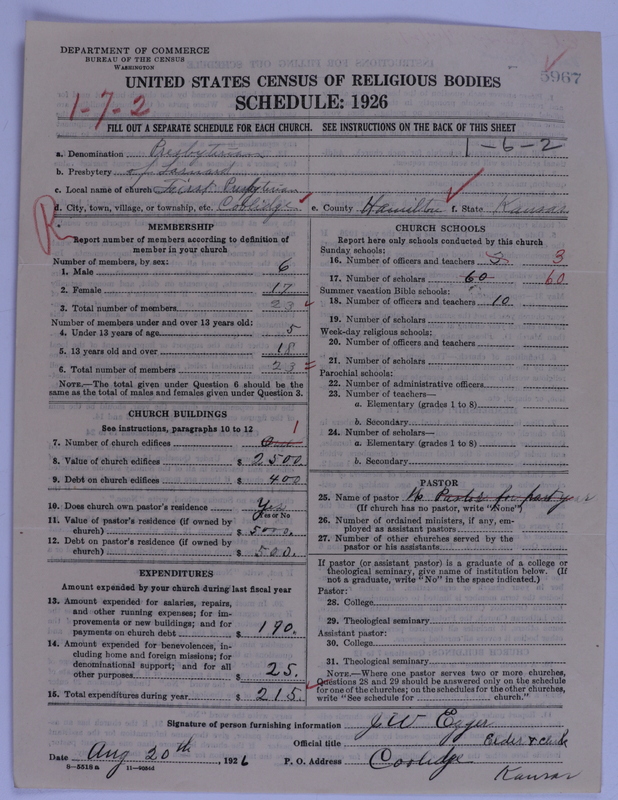 DEPARTMENT OF COMMERCE
BUREAU OF THE CENSUS
WASHINGTON
5967
UNITED STATES CENSUS OF RELIGIOUS BODIES
SCHEDULE: 1926
1-7-2
FILL OUT A SEPARATE SCHEDULE FOR EACH CHURCH. SEE INSTRUCTIONS ON THE BACK OF THIS SHEET
1-6-2
a. Denomination Presbyterian
b. Presbytery of Larnard
c. Local name of church First Presbyterian
d. City, town, village, or township, etc. Coolidge e. County Hamilton f. State Kansas
R
MEMBERSHIP
Report number of members according to definition of
member in your church
Number of members, by sex:
1. Male 6
2. Female 17
3. Total number of members 23
Number of members under and over 13 years old:
4. Under 13 years of age 5
5. 13 years old and over 18
6. Total number of members 23
NOTE.—The total given under Question 6 should be the
same as the total of males and females given under Question 3.
CHURCH BUILDINGS
See instructions, paragraphs 10 to 12
7. Number of church edifices One 1
8. Value of church edifices $ 2500.
9. Debt on church edifices $ 400
10. Does church own pastor's residence Yes
(Yes or No)
11. Value of pastor's residence (if owned by
church) $ 5000.
12. Debt on pastor's residence (if owned by
church) $ 500.
EXPENDITURES
Amount expended by your church during last fiscal year
13. Amount expended for salaries, repairs,
and other running expenses; for im-
provements or new buildings; and for
payments on church debt $ 190.
14. Amount expended for benevolences, in-
cluding home and foreign missions; for
denominational support; and for all
other purposes $ 25.
15. Total expenditures during year $ 215
CHURCH SCHOOLS
Report here only schools conducted by this church
Sunday schools:
16. Number of officers and teachers 3
17. Number of scholars 60 60
Summer vacation Bible schools:
18. Number of officers and teachers 10
19. Number of scholars
Week-day religious schools:
20. Number of officers and teachers
21. Number of scholars
Parochial schools:
22. Number of administrative officers
23. Number of teachers—
a. Elementary (grades 1 to 8)
b. Secondary
24. Number of scholars—
a. Elementary (grades 1 to 8)
b. Secondary
PASTOR
25. Name of pastor No Pastor for past year
(If church has no pastor, write "None")
26. Number of ordained ministers, if any, em-
ployed as assistant pastors
27. Number of other churches served by the
pastor or his assistants
If pastor (or assistant pastor) is a graduate of a college or
theological seminary, give name of institution below. (If
not a graduate, write "No" in the space indicated.)
Pastor:
28. College
29. Theological seminary
Assistant pastor:
30. College
31. Theological seminary
NOTE.—Where one pastor serves two or more churches,
Questions 28 and 29 should be answered only on the schedule
for one of the churches; on the schedules for the other churches,
write "See schedule for church."
Signature of person furnishing information J. W. Egger
Official title Elder & clerk
Date Aug 20th, 1926 P. O. Address Coolidge
Kansas
8-5518a 11-9054d